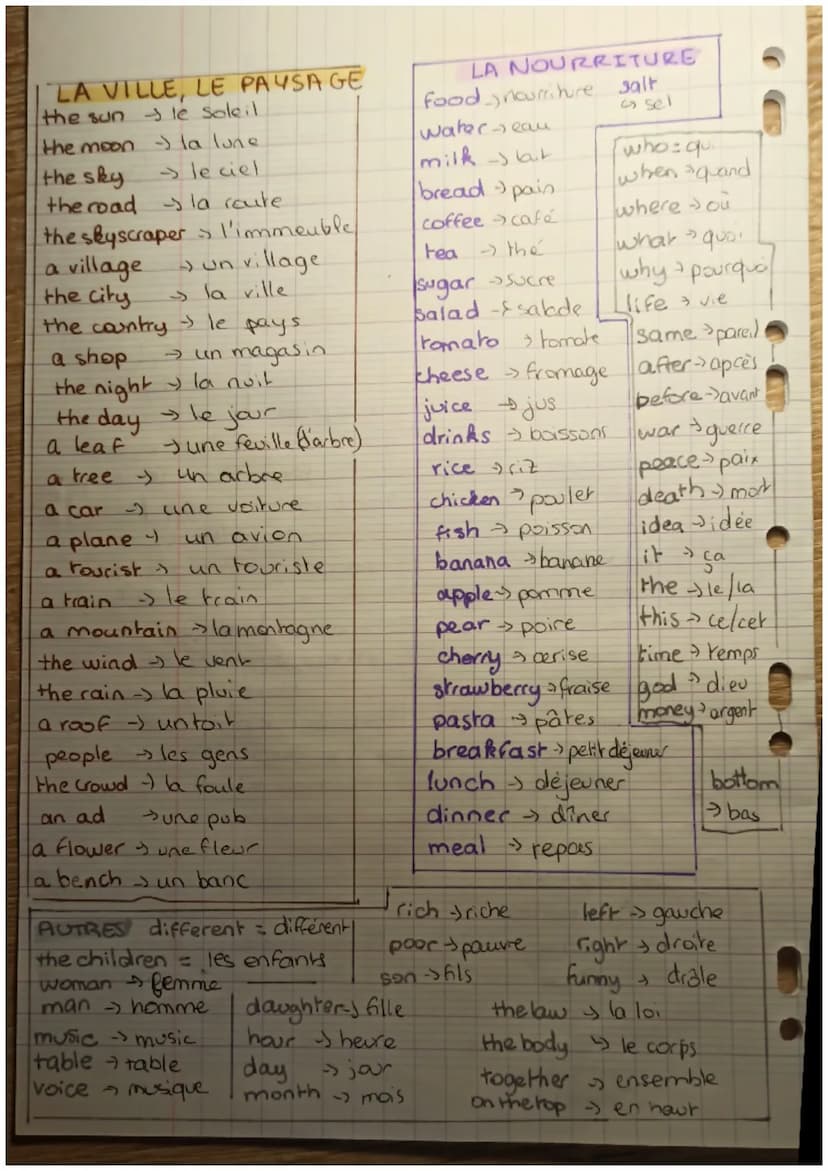 LA VILLE, LE PAYSAGE
the sun → le soleil
the moon → la lune
the sky → le ciel
the road → la route
the skyscraper → l'immeuble
a village → un village
the city → la ville
the country → le pays
a shop → un magasin
the night → la nuit
the day → le jour
a leaf → une feuille (d'arbre)
a tree → un arbre
a car → une voiture
a plane → un avion
a tourist → un touriste
a train → le train
a mountain → la montagne
the wind → le vent
the rain → la pluie
a roof → un toit
people → les gens
the crowd → la foule
an ad → une pub
a flower → une fleur
a bench → un banc
LA NOURRITURE
food → nourriture
salt
↪ sel
water → eau
milk → lait
bread → pain
coffee → café
tea → thé
sugar → sucre
salad → salade
tomato → tomate
cheese → fromage
juice → jus
drinks → boissons
rice → riz
chicken → poulet
fish → poisson
banana → banane
apple → pomme
pear → poire
cherry → cerise
strawberry → fraise
pasta → pâtes
breakfast → petit déjeuner
lunch → déjeuner
dinner → dîner
meal → repas
who = qui
when → quand
where → où
what → quoi
why → pourquoi
life → vie
same → pareil
after → après
before → avant
war → guerre
peace → paix
death → mort
idea → idée
it → ça
the → le/la
this → ce/cet
time → temps
god → dieu
money → argent
bottom
→ bas
AUTRES different = différent
the children = les enfants
woman → femme
man → homme
music → music
table → table
voice → musique
daughter → fille
hour → heure
day → jour
month → mois
rich → riche
poor → pauvre
son → fils
left → gauche
right → droite
funny → drôle
the law → la loi
the body → le corps
together → ensemble
on the top → en haut